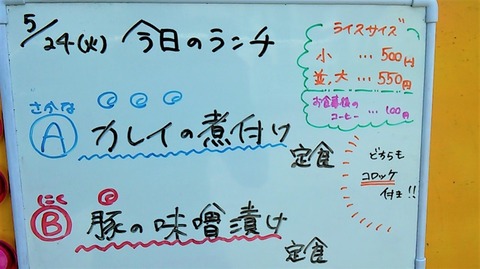 5/24(火) 今日のランチ
ライスサイズ
小 … 500円
並,大 … 550円
お食事後の
コーヒー … 100円
さかな
A カレイの煮付け
定食
にく
B 豚の味噌漬け
定食
どちらも
コロッケ
付き!!